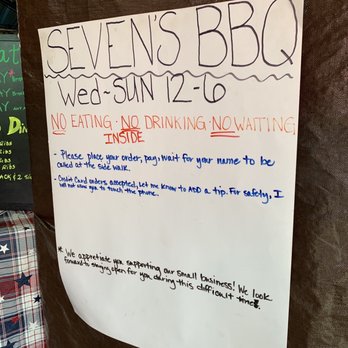 SEVEN'S BBQ
Wed-SUN 12-6
NO EATING · NO DRINKING · NO WAITING
INSIDE
- Please place your order, pay, wait for your name to be
called at the side walk.
- Credit Card orders accepted, let me know to ADD a tip. For safety, I
will not allow you to touch the phone.
* We appreciate you supporting our small business! We look
forward to staying open for you during this difficult time.